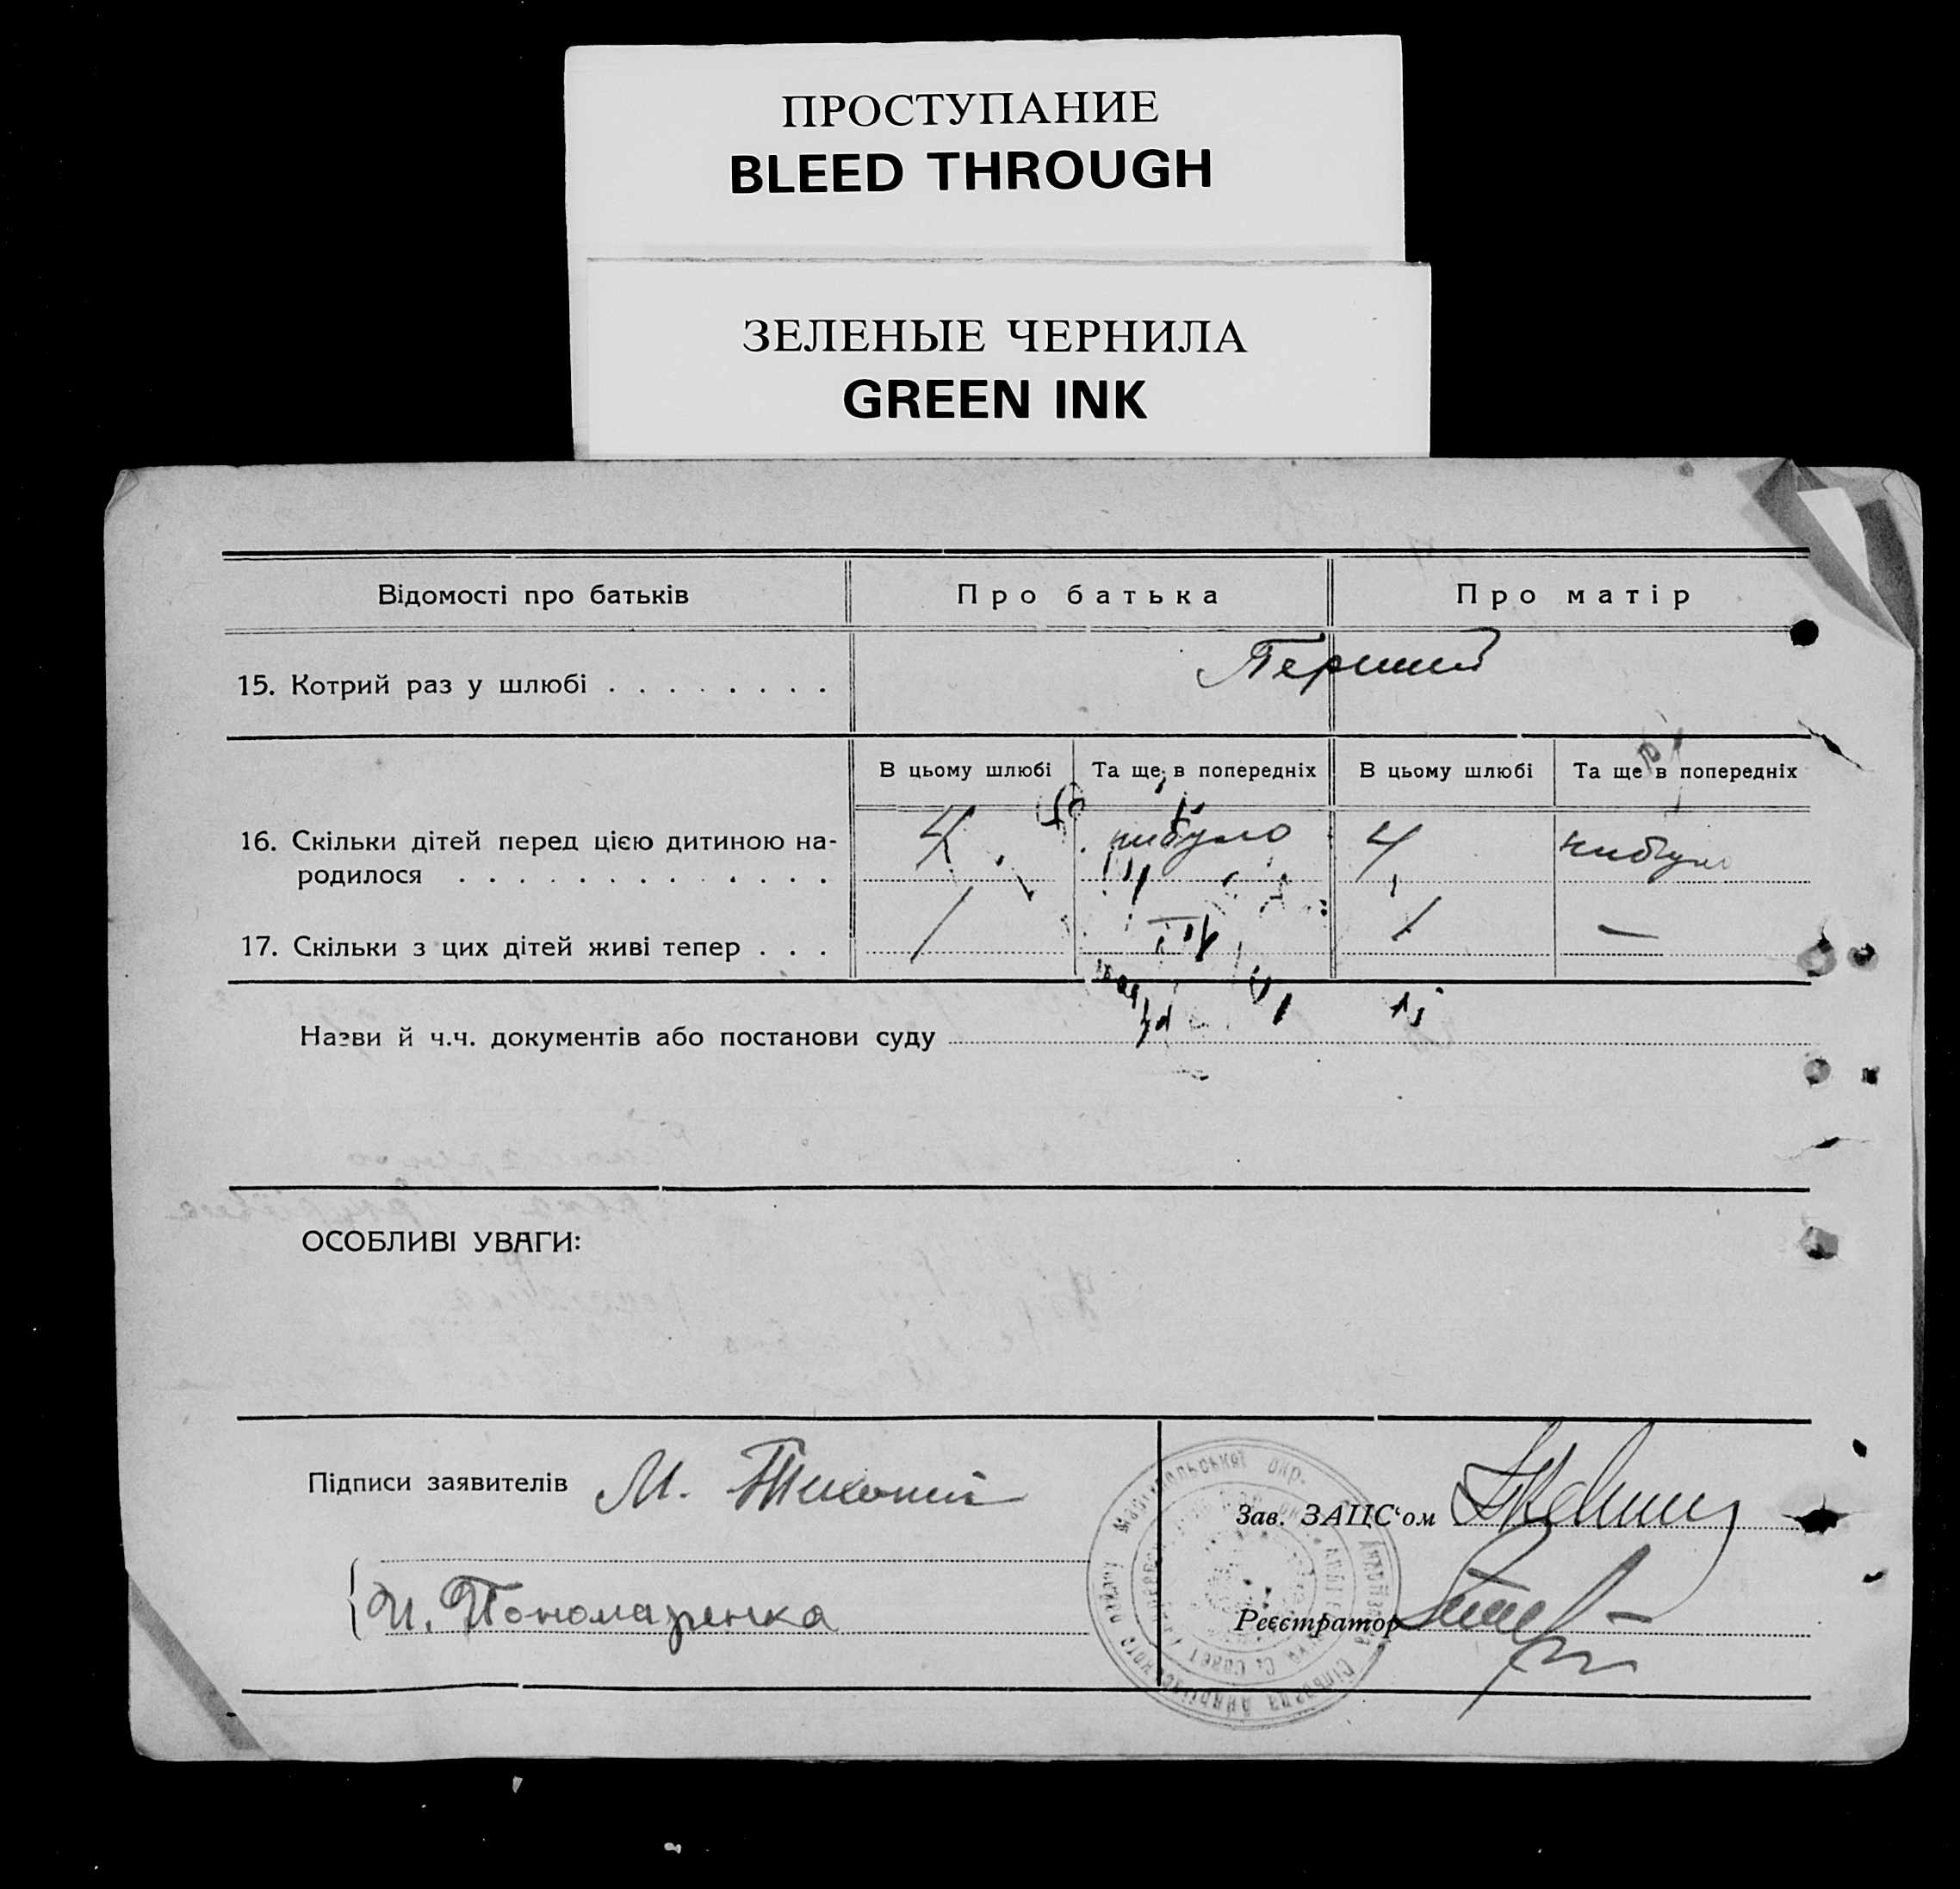 ПРОСТУПАНИЕ
BLEED THROUGH
ЗЕЛЕНЫЕ ЧЕРНИЛА
GREEN INK
Відомості про батьків Про батька Про матір
15. Котрий раз у шлюбі . . . . . . . . Перший
В цьому шлюбі Та ще в попередніх В цьому шлюбі Та ще в попередніх
16. Скільки дітей перед цією дитиною на-
родилося . . . . . . . . . . . . . 4 нибуло 4 нибуло
17. Скільки з цих дітей живі тепер . . . / / —
Назви й ч.ч. документів або постанови суду
ОСОБЛИВІ УВАГИ:
Підписи заявителів М.
Зав. ЗАЦС‘ом
И. Пономаренка
Реєстратор